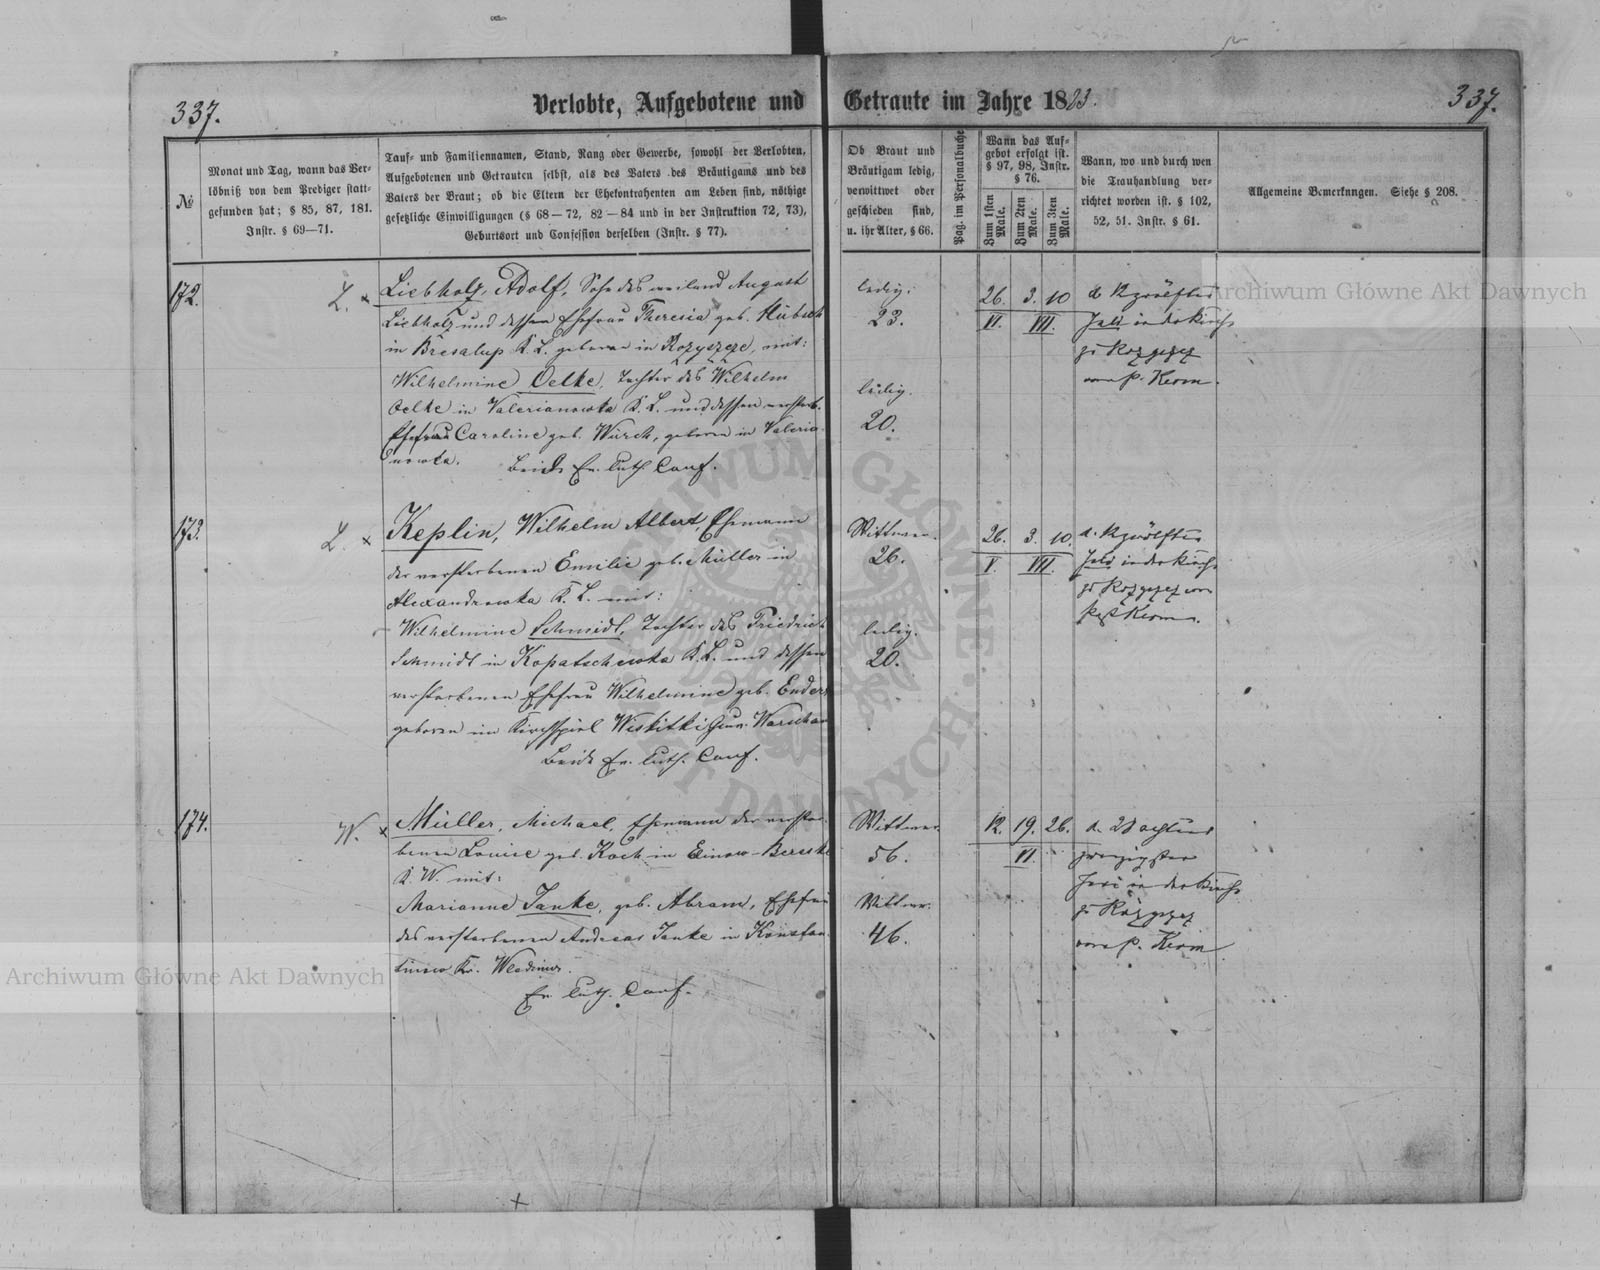 337.
Verlobte, Aufgebotene und Getraute im Jahre 1883.
337.
№
Monat und Tag, wann das Ver-
löbniß von dem Prediger statt-
gefunden hat; § 85, 87, 181.
Instr. § 69—71.
Tauf- und Familiennamen, Stand, Rang oder Gewerbe, sowohl der Verlobten,
Aufgebotenen und Getrauten selbst, als des Vaters des Bräutigams und des
Vaters der Braut; ob die Eltern der Ehekontrahenten am Leben sind, nöthige
gesetzliche Einwilligungen (§ 68—72, 82—84 und in der Instruktion 72, 73),
Geburtsort und Confession derselben (Instr. § 77).
Ob Braut und
Bräutigam ledig,
verwittwet oder
geschieden sind,
u. ihr Alter, § 66.
Pag. im Personalbuche
Wann das Auf-
gebot erfolgt ist.
§ 97, 98, Instr.
§ 76.
Zum 1sten
Male.
Zum 2ten
Male.
Zum 3ten
Male.
Wann, wo und durch wen
die Trauhandlung ver-
richtet worden ist. § 102,
52, 51. Instr. § 61.
Allgemeine Bemerkungen. Siehe § 208.
172.
L. x
Liebholz, Adolf, Sohn des weiland August
Liebholz und dessen Ehefrau Theresia geb. Hübsch
in K. L. geboren in Rozyszcze, mit:
Wilhelmine Oelke, Tochter des Wilhelm
Oelke in Valerianowka K. L. und dessen verstorb.
Ehefrau Caroline geb. Würch, geboren in Valeria-
nowka. Beide Ev. Luth. Conf.
ledig.
23.
ledig.
20.
26. 3. 10
VI. VII.
d. 12 zwölften
Juli in der Kirche
zu
von P. Kerm.
173.
L. x
Keplin, Wilhelm Albert, Ehemann
der verstorbenen Emilie geb. Müller in
Alexandrowka K. L. mit:
Wilhelmine Schmidt, Tochter des Friedrich
Schmidt in Kopatschewka K. L. und dessen
verstorbenen Ehefrau Wilhelmine geb. Enders
geboren im Kirchspiel Wiskitki Gouv. Warschau
Beide Ev. Luth. Conf.
Wittwer.
26.
ledig.
20.
26. 3. 10.
V. VII.
d. 12 zwölften
Juli in der Kirche
zu von
Past. Kerm.
174.
W. x
Müller, Michael, Ehemann der verstor-
benen Louise geb. Koch in
K. W. mit:
Marianne Janke, geb. Abram, Ehefrau
des verstorbenen Andreas Janke in Konstan-
tinow Kr. Wladimir.
Ev. Luth. Conf.
Wittwer.
56.
Wittwe.
46.
12. 19. 26.
VI.
d. 28 achtund
zwanzigsten
Juni in der Kirche
zu
von P. Kerm
Archiwum Główne Akt Dawnych
Archiwum Główne Akt Dawnych
ARCHIWUM GŁÓWNE AKT DAWNYCH